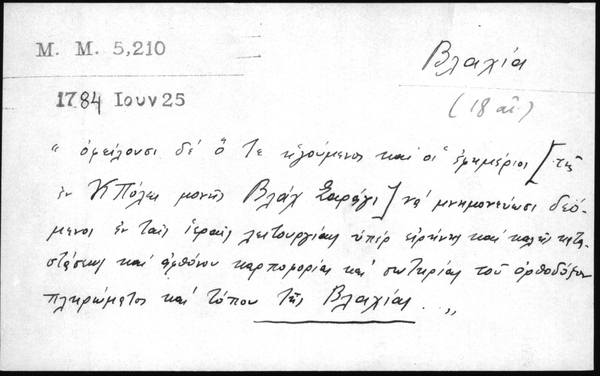 Μ. Μ. 5,210
Βλαχία
1784 Ιουν 25
(18 αἰ)
“ ὀφείλουσι δέ ὅ τε ἡγούμενος καὶ οἱ ἐφημέριοι [τῆς
ἐν Κπόλει μονῆς Βλὰχ Σαράγι] νὰ μνημονεύωσι δεό-
μενοι ἐν ταῖς ἱεραῖς λειτουργίαις ὑπὲρ εἰρήνης καὶ καλῆς κατα-
στάσεως καὶ ἀφθόνου καρποφορίας καὶ σωτηρίας τοῦ ὀρθοδόξου
πληρώματος καὶ τόπου τῆς Βλαχίας . „